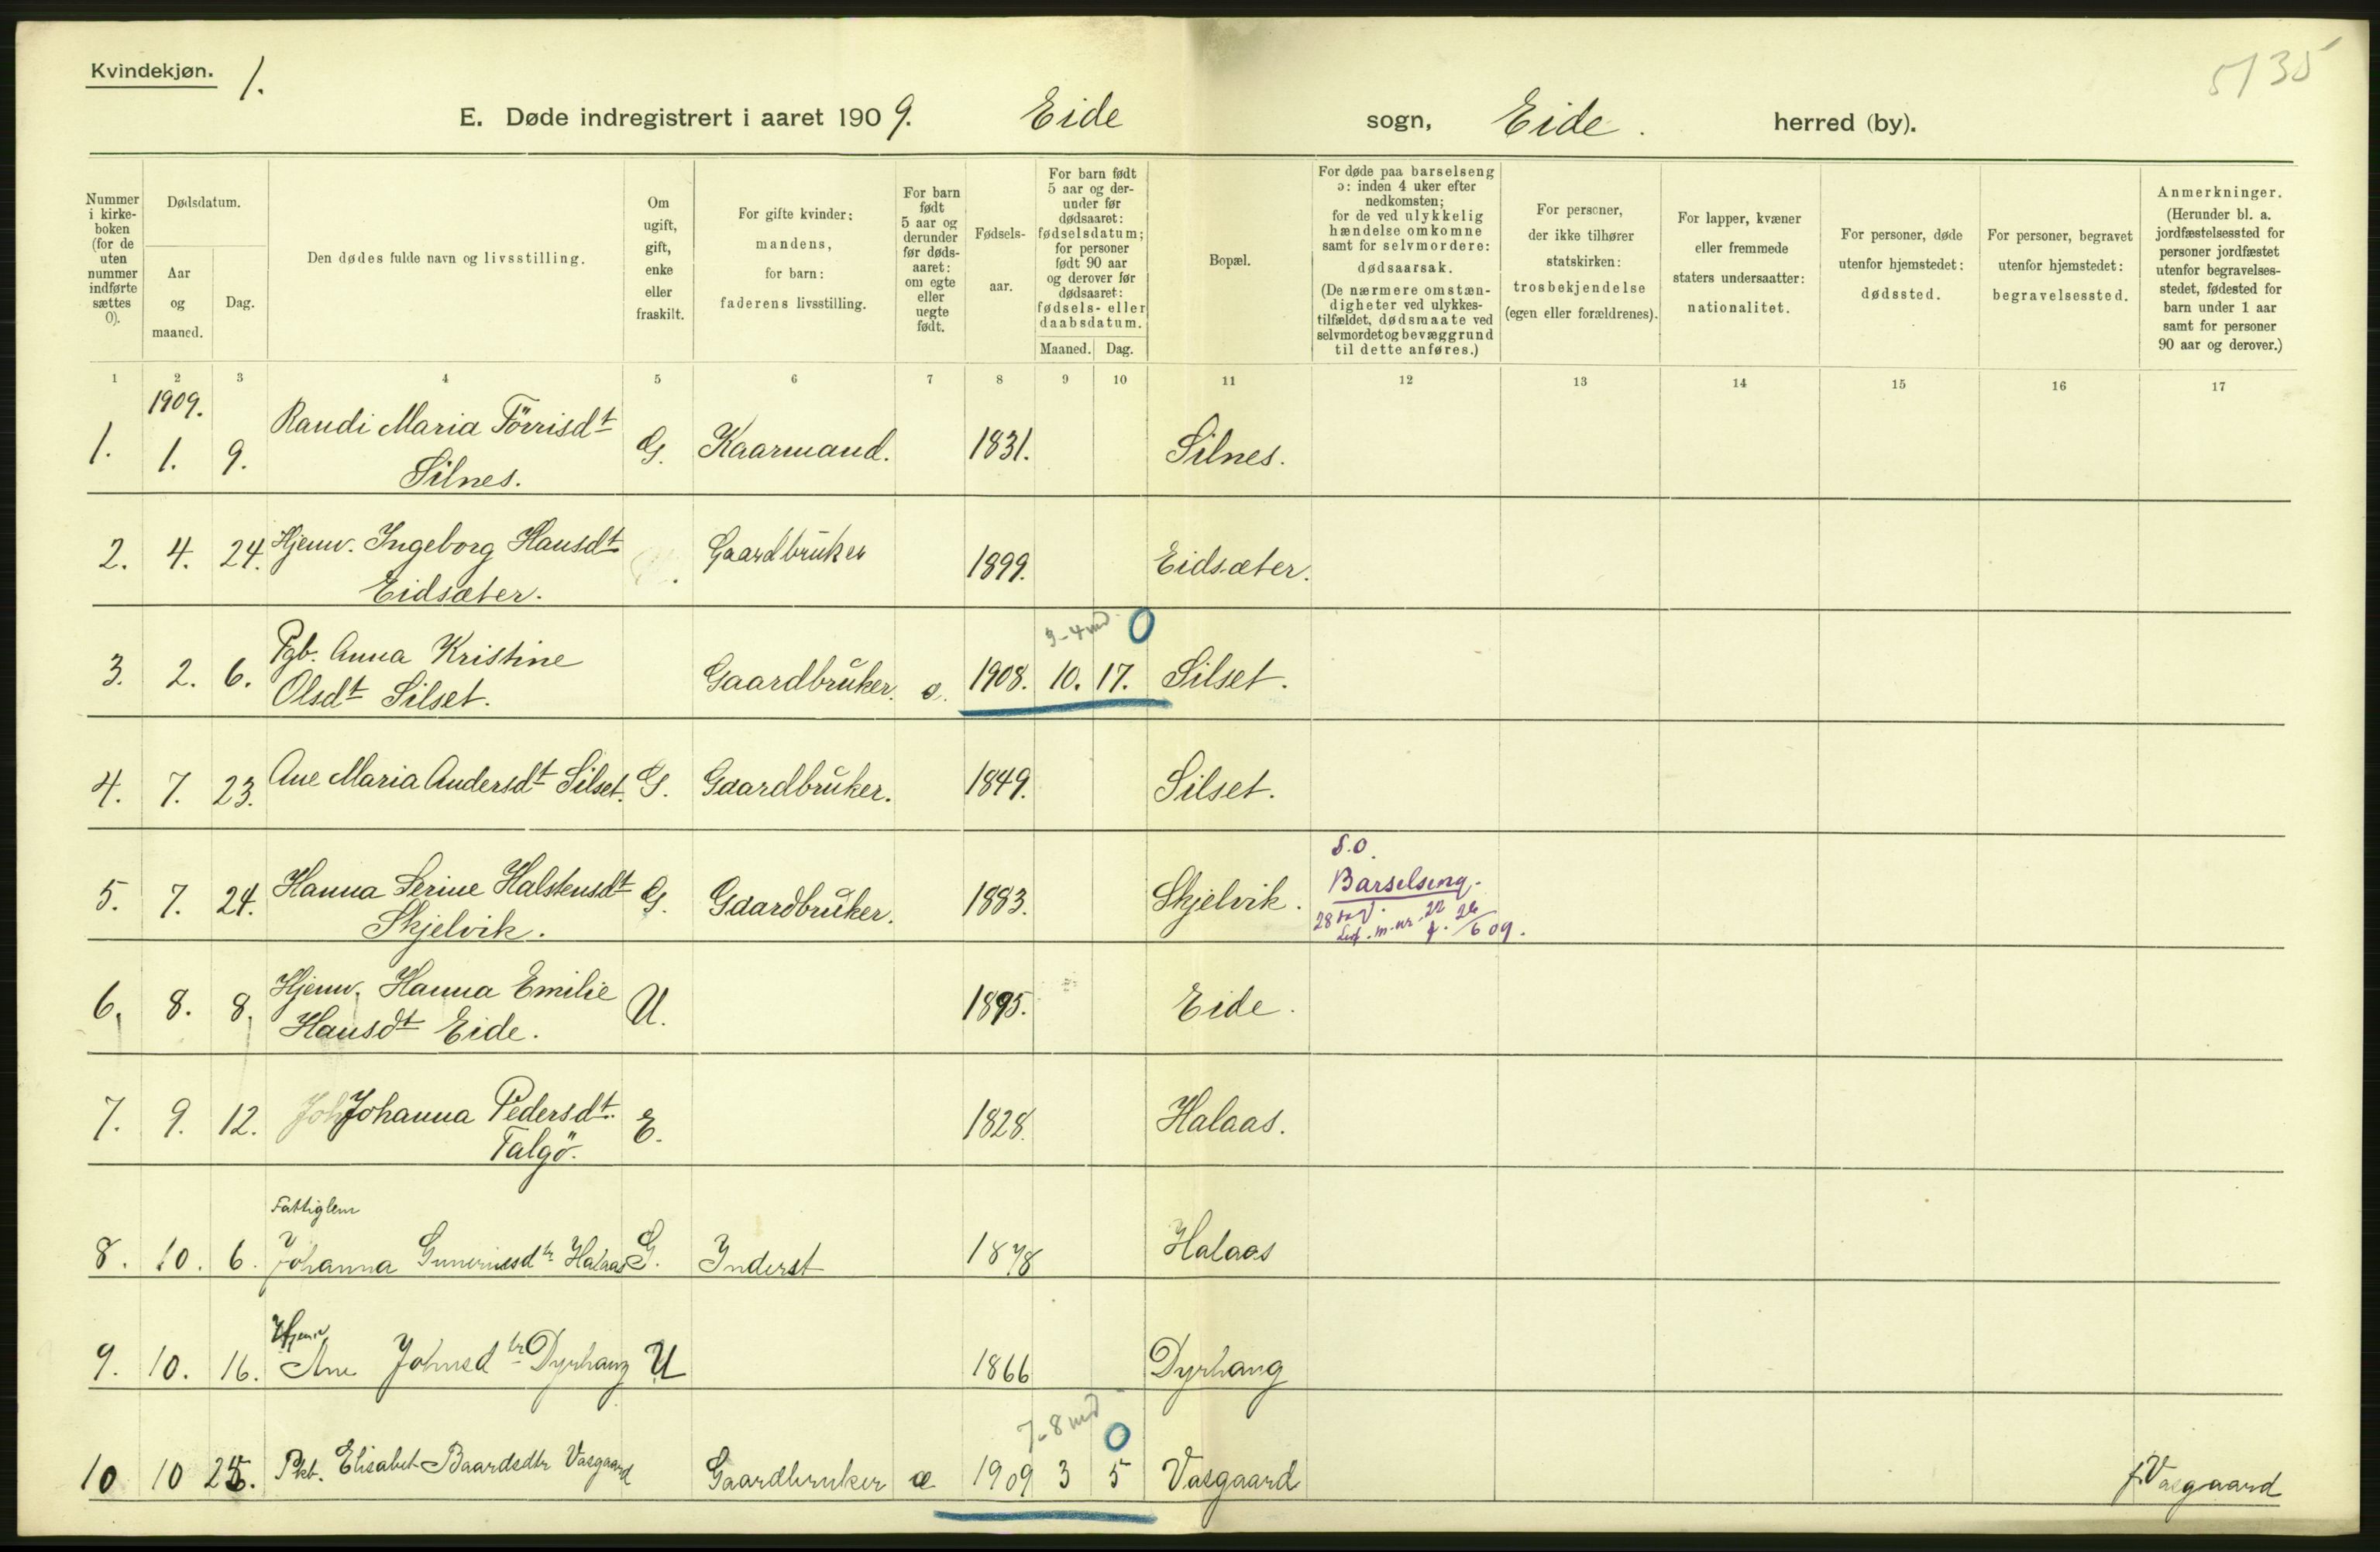 Kvindekjøn. 1.
5/35
E. Døde indregistrert i aaret 1909. Eide sogn, Eide. herred (by).
Nummer i kirke-boken (for de uten nummer indførte sættes 0).
Dødsdatum.
Aar og maaned.
Dag.
Den dødes fulde navn og livsstilling.
Om ugift, gift, enke eller fraskilt.
For gifte kvinder: mandens, for barn: faderens livsstilling.
For barn født 5 aar og derunder før døds-aaret: om egte eller uegte født.
Fødsels-aar.
For barn født 5 aar og der-under før dødsaaret: fødselsdatum; for personer født 90 aar og derover før dødsaaret: fødsels- eller daabsdatum.
Maaned. Dag.
Bopæl.
For døde paa barselseng ɔ: inden 4 uker efter nedkomsten; for de ved ulykkelig hændelse omkomne samt for selvmordere: dødsaarsak. (De nærmere omstæn-digheter ved ulykkes-tilfældet, dødsmaate ved selvmordet og bevæggrund til dette anføres.)
For personer, der ikke tilhører statskirken: trosbekjendelse (egen eller forældrenes).
For lapper, kvæner eller fremmede staters undersaatter: nationalitet.
For personer, døde utenfor hjemstedet: dødssted.
For personer, begravet utenfor hjemstedet: begravelsessted.
Anmerkninger. (Herunder bl. a. jordfæstelsessted for personer jordfæstet utenfor begravelses-stedet, fødested for barn under 1 aar samt for personer 90 aar og derover.)
1 2 3 4 5 6 7 8 9 10 11 12 13 14 15 16 17
1909.
1. 1. 9. Randi Maria Törrisdt G. Kaarmand. 1831. Silnes.
Silnes.
2. 4. 24. Hjemv. Ingeborg Hansdt Gaardbruker 1899. Eidsæter.
Eidsæter.
3-4 md 0
3. 2. 6. Pgb. Anna Kristine Gaardbruker. e. 1908. 10. 17. Silset.
Olsdt Silset.
4. 7. 23. Ane Maria Andersdt Silset. G. Gaardbruker. 1849. Silset.
S.O.
Barselseng.
5. 7. 24. Hanna Serine Halstensdt G. Gaardbruker. 1883. Skjelvik.
Skjelvik.
m. nr. 22 f. 26/6 09.
6. 8. 8. Hjemv. Hanna Emilie U. 1895. Eide.
Hansdt Eide.
7. 9. 12. Johanna Pedersdt. E. 1828. Halaas.
Talgö.
Fattiglem
8. 10. 6. Johanna Halaas G. Inderst 1878 Halaas
Hjemv
9. 10. 16. Ane Johnsdtr Dyrhaug U 1866 Dyrhaug
7-8 md 0
10 10 25. Pkb. Elisabet Baardsdtr Vasgaard Gaardbruker æ 1909 3 5 Vasgaard f. Vasgaard